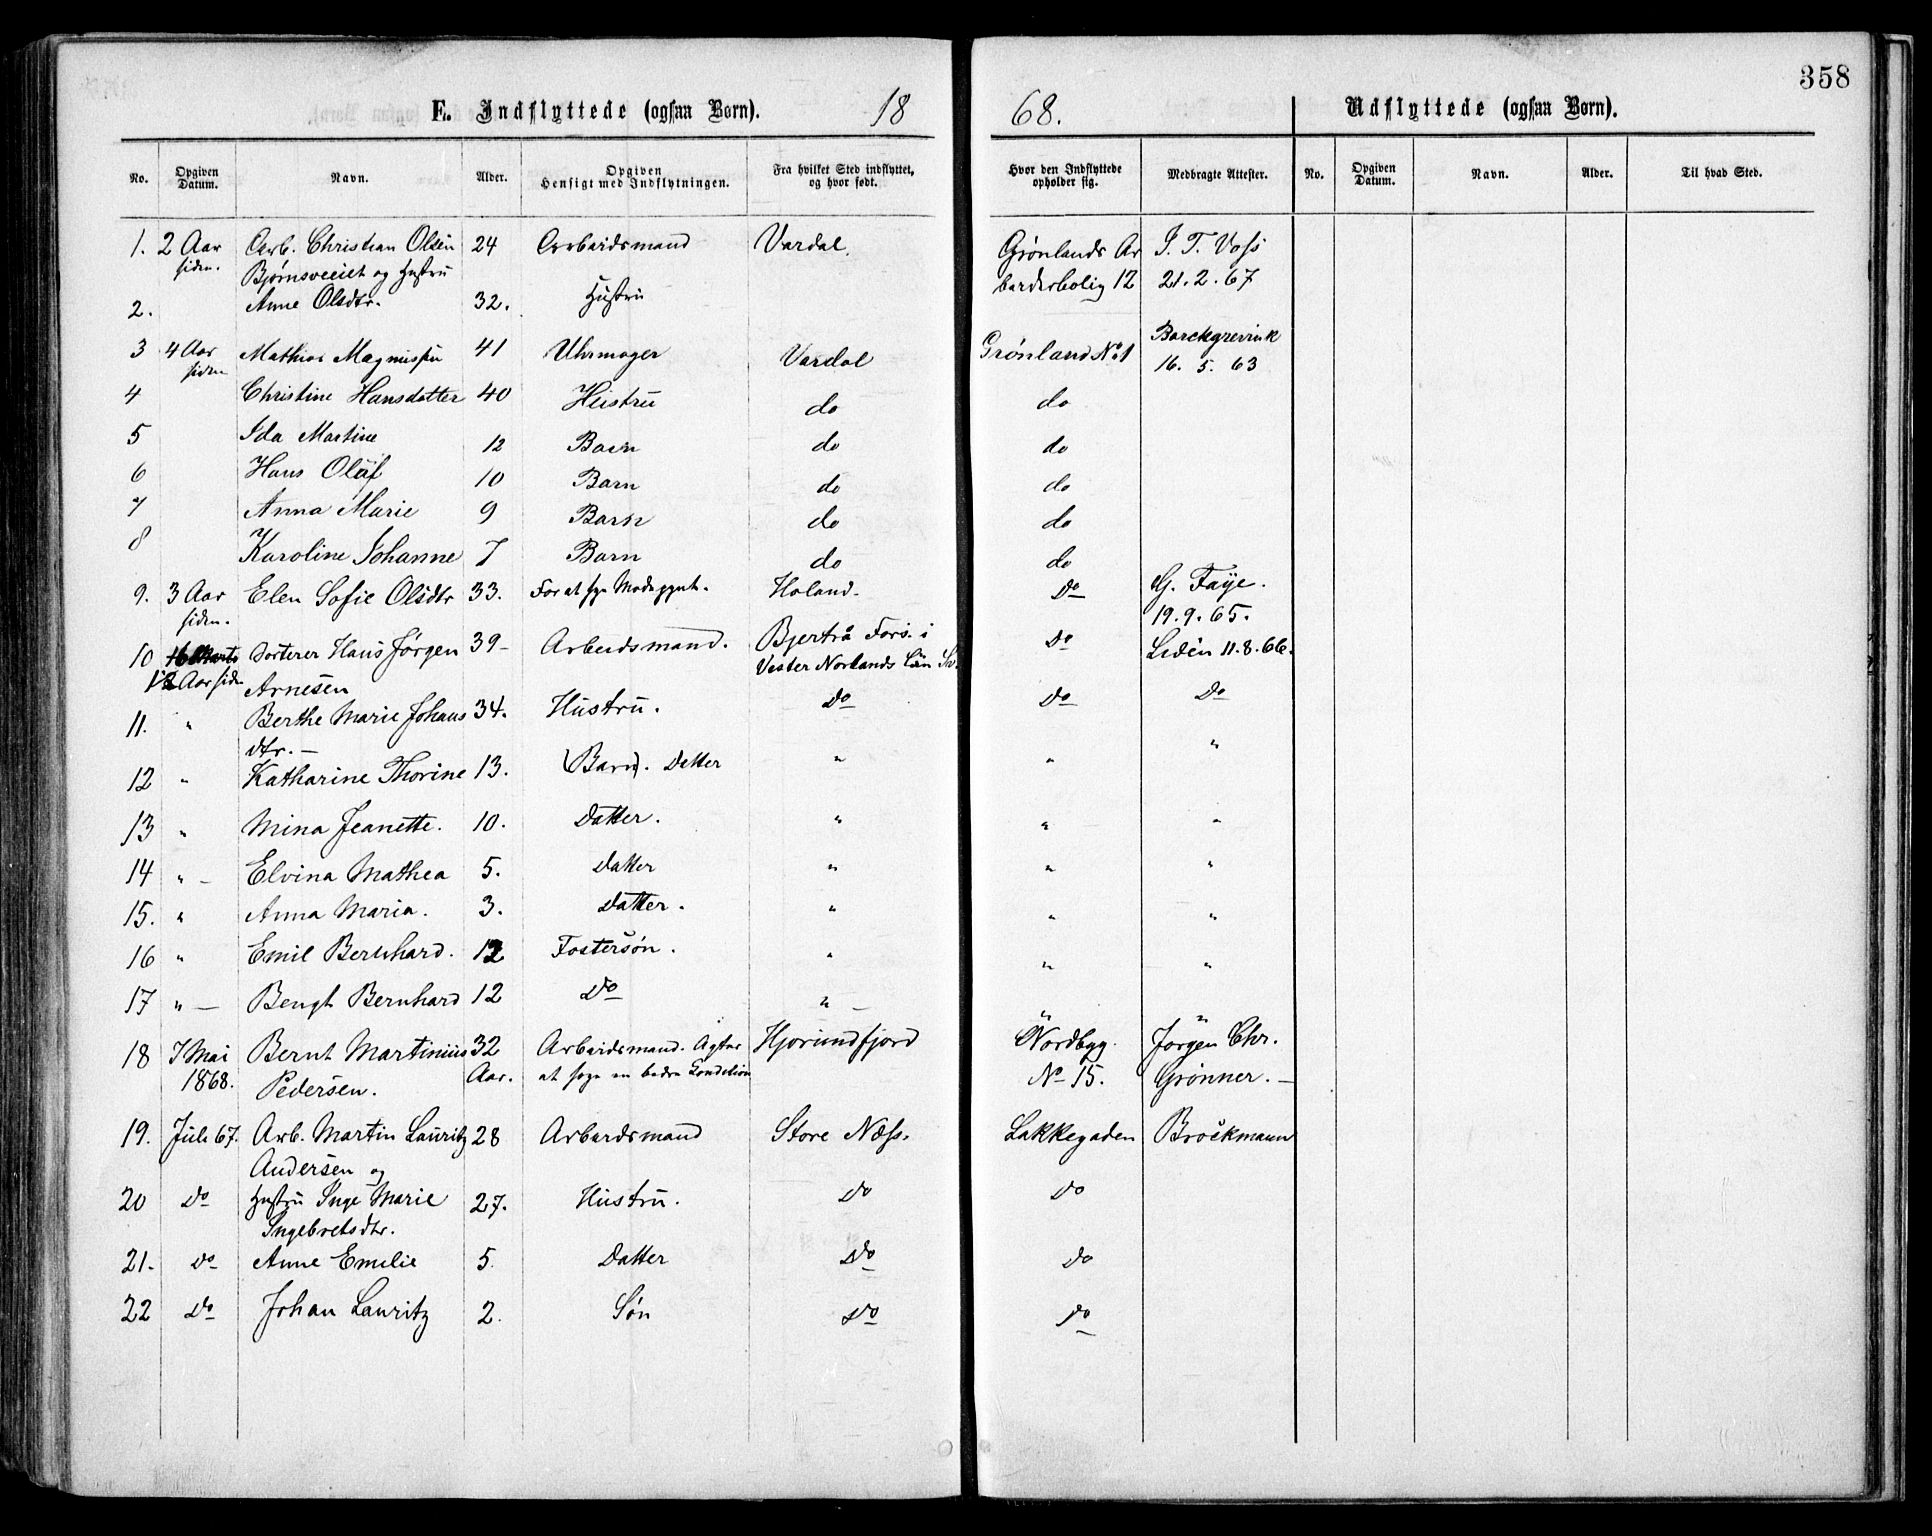 358
E. Indflyttede (ogsaa Børn). 18 68. Udflyttede (ogsaa Børn).
No. Opgiven Datum. Navn. Alder. Opgiven Hensigt med Indflytningen. Fra hvilket Sted indflyttet, og hvor født. Hvor den Indflyttede opholder sig. Medbragte Attester. No. Opgiven Datum. Navn. Alder. Til hvad Sted.
1. 2 Aar Arb. Christian Olsen 24 Arbeidsmand Vardal. Grønlands Ar J. T. Voss
siden. Bjørnsveeiet og Hustru beiderbolig 12 21.2.67
2. Anne Olsdtr. 32. Hustru
3 4 Aar Mathias Magnussen 41 Uhrmager Vardal Grønland No 1 Borchgrevink
siden 16. 5. 63
4 Christine Hansdatter 40 Hustru do do
5 Ida Martine 12 Barn do do
6 Hans Olaf 10 Barn do do
7 Anna Marie 9 Barn do do
8 Karoline Johanne 7 Barn do do
9. 3 Aar Elen Sofie Olsdtr 33. For at sye Modepynt. Høland. Do G. Faye.
siden. 19.9.65.
10 16 Marts Sorterer Hans Jørgen 39 - Arbeidsmand. Bjertrå Fors. i Do Lidén 11.8.66.
1½ Aar siden Arnesen Vester Norlands Län Sv.
11. " Berthe Marie Johans 34. Hustru. Do Do Do
dtr. -
12 " Katharine Thorine 13. (Barn). Datter " " "
13 " Mina Jeanette. 10. Datter. " " "
14 " - Elvina Mathea 5. Datter " " "
15. " Anna Maria. 3. Datter. " " "
16 " Emil Bernhard. 12 Fostersøn. " " "
17 " - Bengt Bernhard 12 Do " - " "
18 7 Mai Bernt Martinius 32 Arbeidsmand. Agter Hjørundfjord Nordbyg. Jørgen Chr.
1868. Pedersen. Aar. at søge en bedre Condition No 15. Grønner. -
19. Juli 67. Arb. Martin Lauritz 28 Arbeidsmand Store Næss. Lakkegaden Brockmann
Andersen og
20 Do Hustru Inge Marie 27. Hustru. Do Do
Ingebretsdtr.
21. Do Anne Emilie 5. Datter Do Do
22 Do Johan Lauritz 2. Søn Do Do